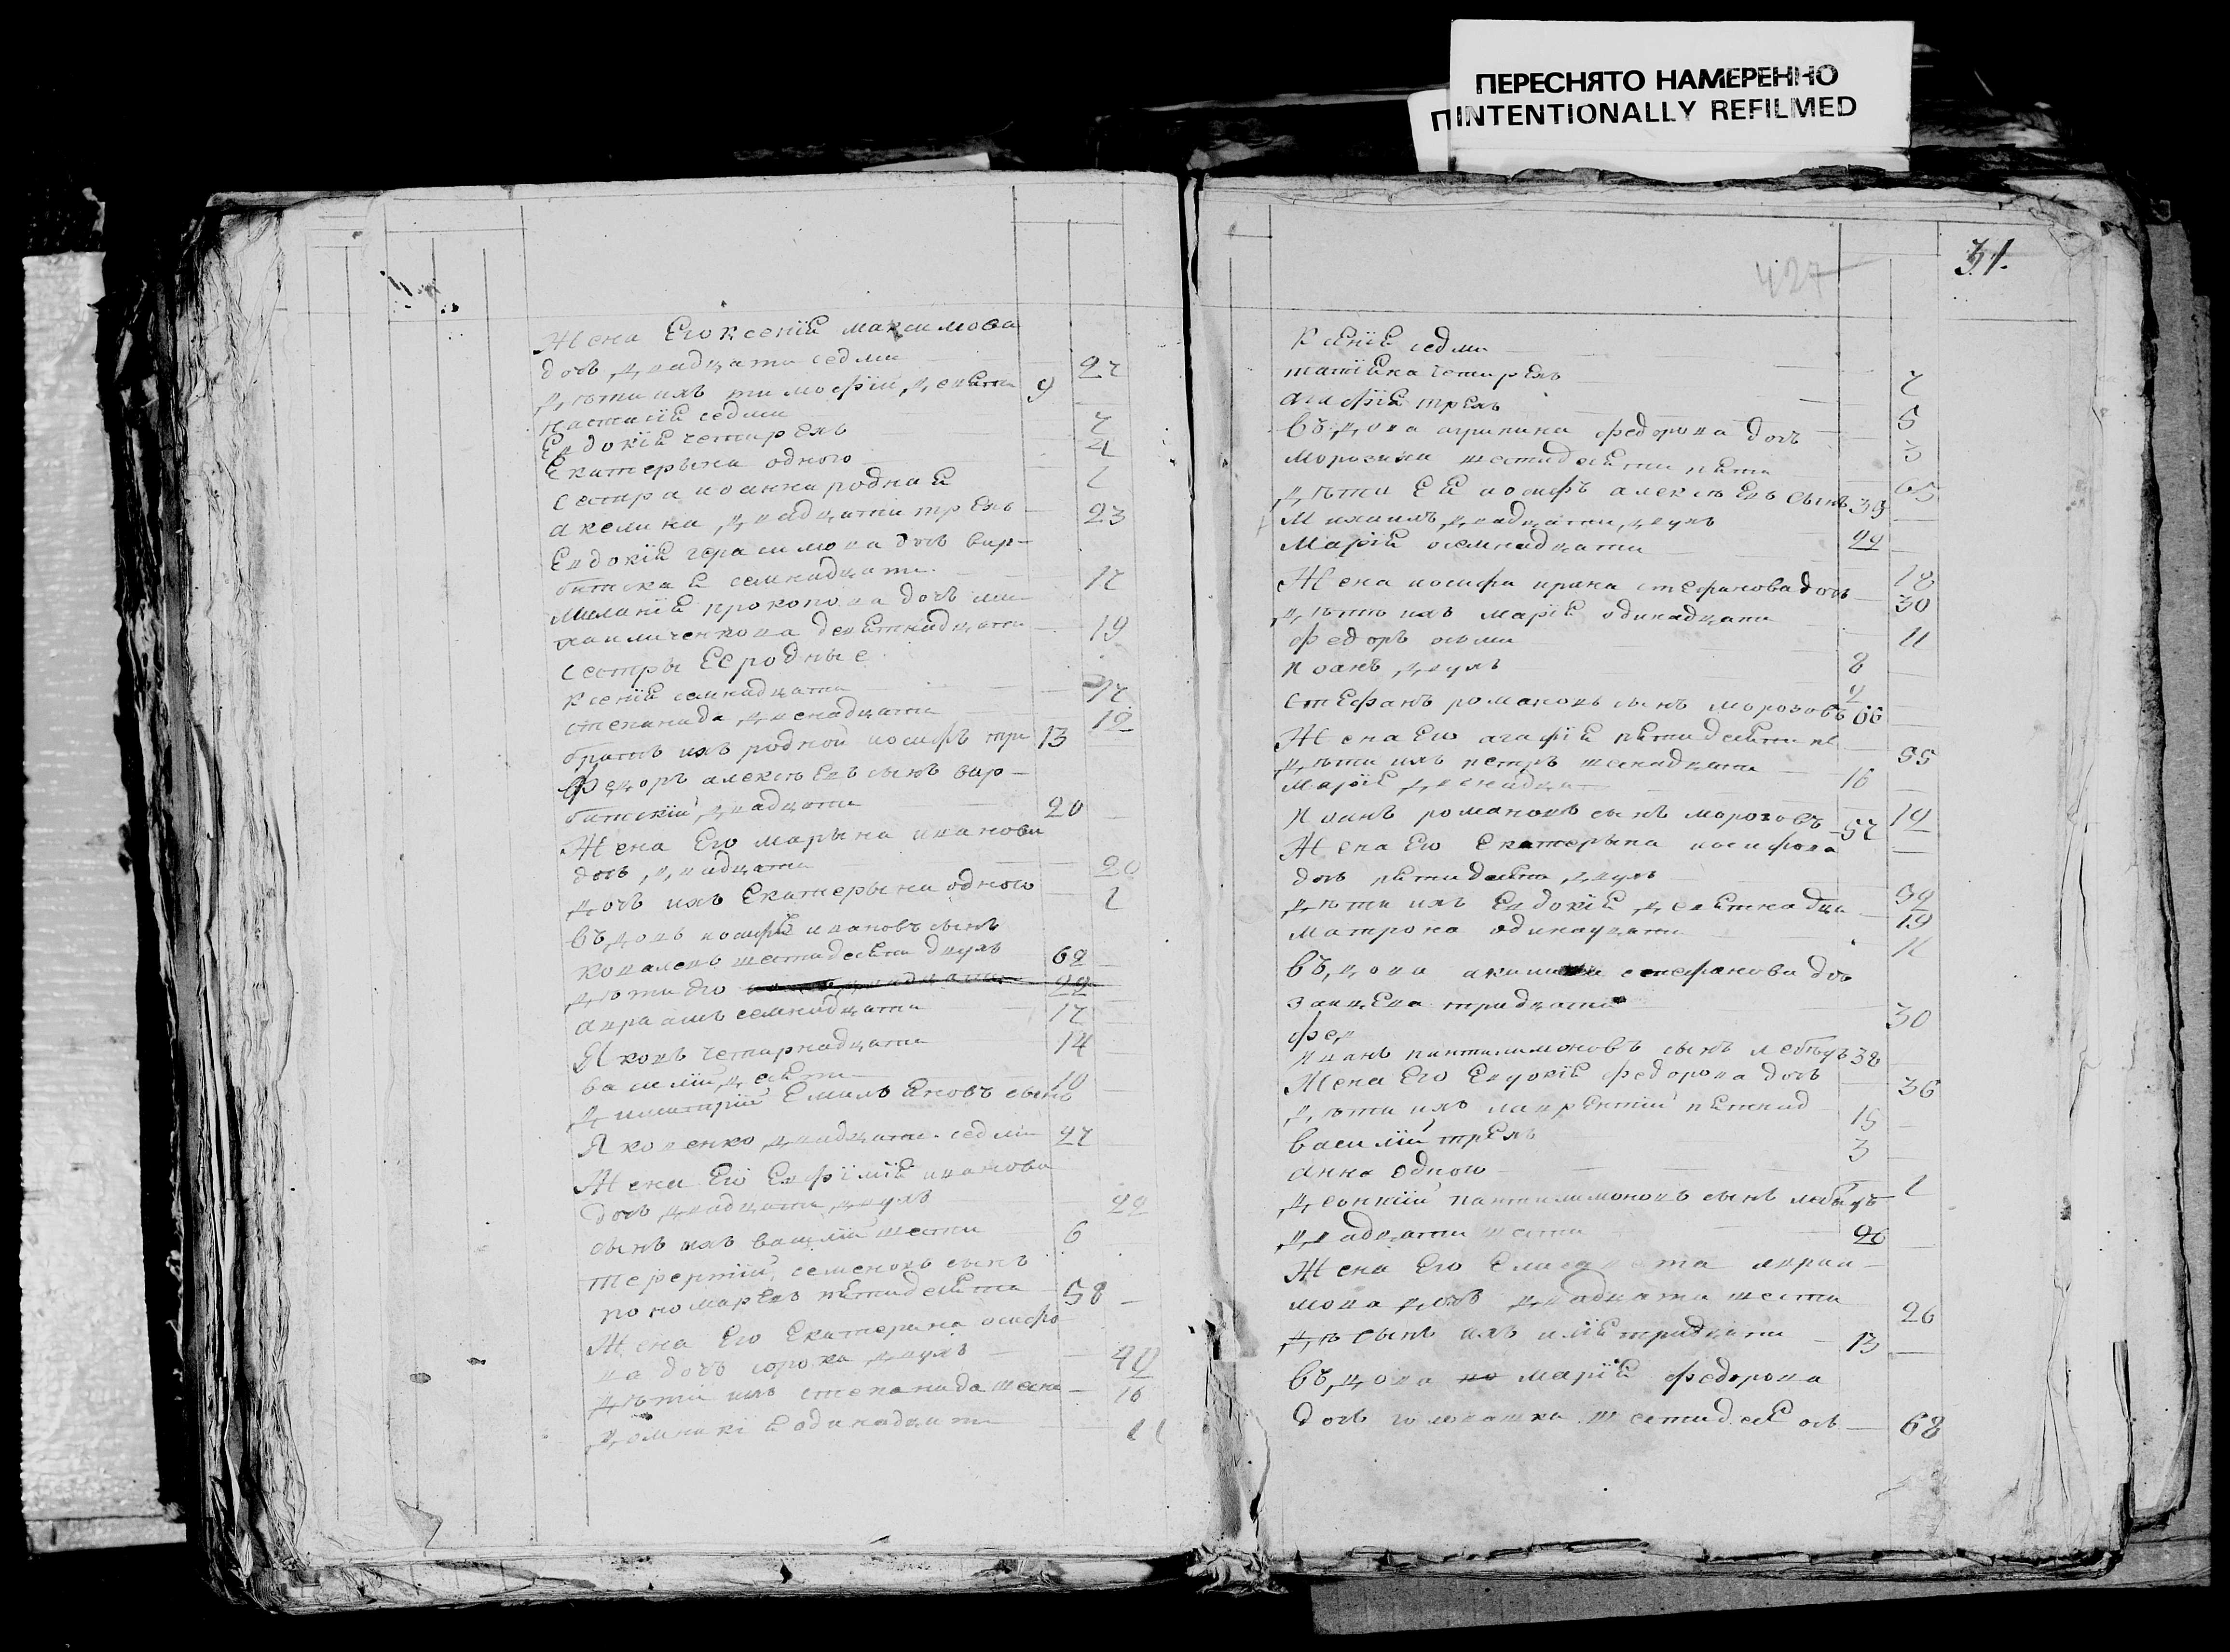 ПЕРЕСНЯТО НАМЕРЕННО
INTENTIONALLY REFILMED
Жена Его ксенїя максимова
дочь двадцати седми 27
дѣти ихъ тимофїй девяти 9
настасїя седми 7
Евдокїя четирехъ 4
Екатерына одного 1
сестра иоанна родная
акелина двадцати трехъ 23
Евдокїя герасимова дочь вар-
семнадцати 17
миланїя прокопова дочь ми-
хаиличенкова девятнадцати 19
сестры Ее родные
ксенїя семнадцати 17
степанида двенадцати 12
братъ ихъ родной иосифъ три 13
Федоръ алексѣевъ сынъ вар-
двадцати 20
Жена Его марына иванова
дочь двадцати 20
дочь ихъ Екатерына одного 1
въдовъ иосифъ ивановъ сынъ
ковалевъ шестидесяти двухъ 62
дѣти его 22
авраамъ семнадцати 17
Яковъ четирнадцати 14
василїй десяти 10
димитрїй Емильяновъ сынъ
Яковенко двадцати седми 27
Жена Его Евфїмїя иванова
дочь двадцати двухъ 22
сынъ ихъ василїй шести 6
терентїй семеновъ сынъ
пономаревъ пятидесяти 58
Жена Его Екатерина осифо
ва дочь сорока двухъ 42
дѣти ихъ степанида шесна 16
домникїя одинадцати 11
427
31.
Ксенїя седми 7
татїяна четирехъ 5
агафїя трехъ 3
въдова агрипина федорова дочь
морозина шестидесяти пяти 65
дѣти Ея иосифъ алексѣевъ сынъ 39
Михаилъ двадцати двухъ 22
Марїя осемнадцати 18
Жена иосифа ирина стефанова дочь 30
дѣти ихъ марїя одинадцати 11
федоръ осьми 8
иоанъ двухъ 2
стефанъ романовъ сынъ морозовъ 66
Жена Его агафїя пятидесяти пя 55
дѣти ихъ петръ шеснадцати 16
марїя двенадцат 12
иоанъ романовъ сынъ морозовъ 57
Жена Его Екатерына иосифова
дочь пятидесяти двухъ 52
дѣти ихъ Евдокїя девятнадца 19
матрона одинадцати 11
въдова стефанова доч
заицева тридцати 30
фед
иванъ пантилимоновъ сынъ лебѣдъ 38
Жена Его Евдокїя федорова дочь 36
дѣти ихъ лаврентїй пятнад 15
василїй трехъ 3
анна одного 1
леонтїй пантилимоновъ сынъ лебѣдъ
двадцати шести 26
Жена Его Елисавета авраа-
мова дочь двадцати шести 26
дѣ сынъ ихъ илїя тридцати 13
въдова но марїя федорова
дочь шестидеся ось 68